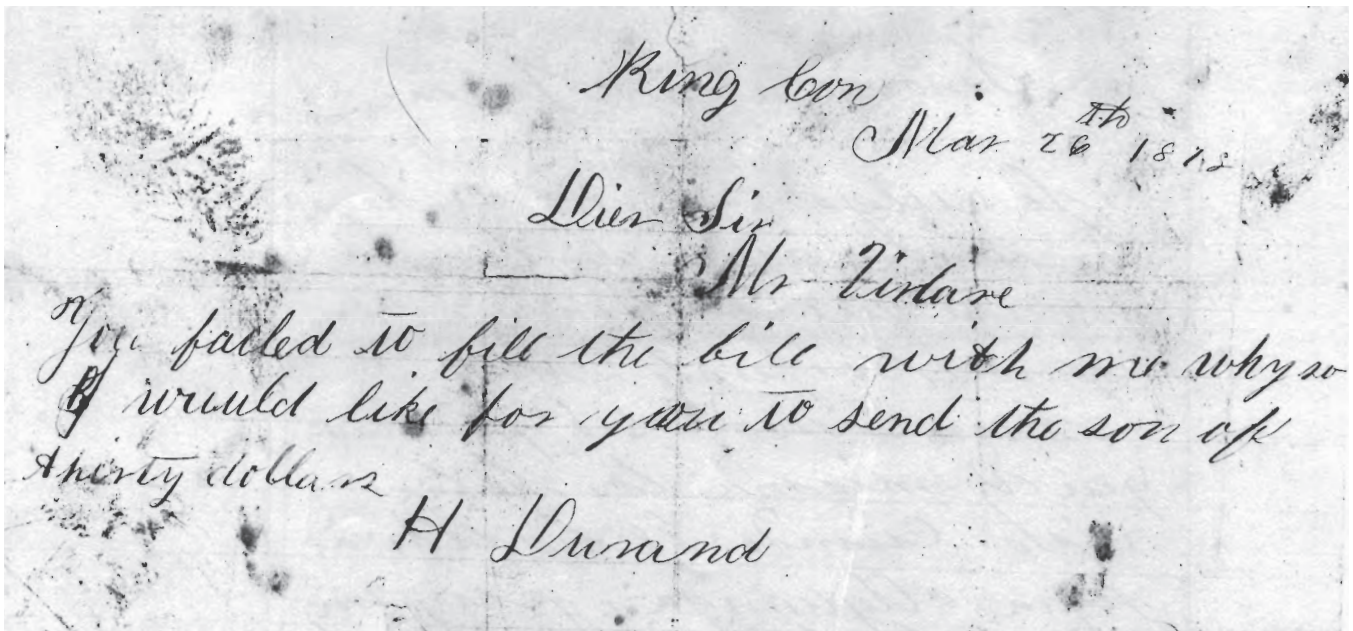 King Con
Mar 26th 1878
Dier Sir
Mr
You failed to fill the bill with me why so
I would like for you to send the son of
thirty dollars
H Durand